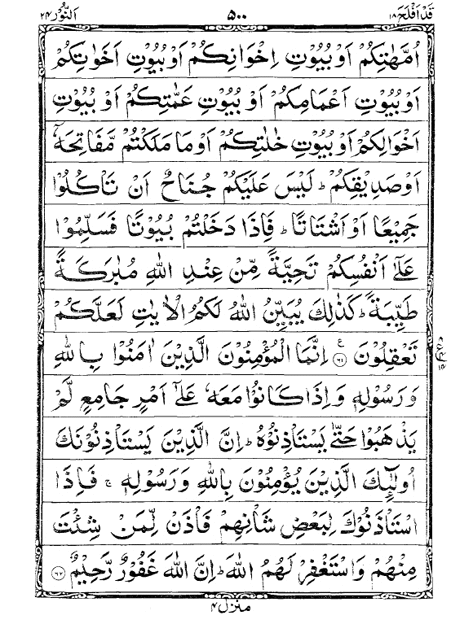 قَدْ اَفْلَحَ ۱۸ ۵۰۰ اَلنُّوْر ۲۴
اُمَّهٰتِكُمْ اَوْ بُيُوْتِ اِخْوَانِكُمْ اَوْ بُيُوْتِ اَخَوٰتِكُمْ
اَوْ بُيُوْتِ اَعْمَامِكُمْ اَوْ بُيُوْتِ عَمّٰتِكُمْ اَوْ بُيُوْتِ
اَخْوَالِكُمْ اَوْ بُيُوْتِ خٰلٰتِكُمْ اَوْ مَا مَلَكْتُمْ مَّفَاتِحَهٗۤ
اَوْ صَدِيْقِكُمْ ؕ لَيْسَ عَلَيْكُمْ جُنَاحٌ اَنْ تَاْكُلُوْا
جَمِيْعًا اَوْ اَشْتَاتًا ؕ فَاِذَا دَخَلْتُمْ بُيُوْتًا فَسَلِّمُوْا
عَلٰۤى اَنْفُسِكُمْ تَحِيَّةً مِّنْ عِنْدِ اللّٰهِ مُبٰرَكَةً
طَيِّبَةً ؕ كَذٰلِكَ يُبَيِّنُ اللّٰهُ لَكُمُ الْاٰيٰتِ لَعَلَّكُمْ
تَعْقِلُوْنَ ﴿۶۱﴾ ع اِنَّمَا الْمُؤْمِنُوْنَ الَّذِيْنَ اٰمَنُوْا بِاللّٰهِ
وَرَسُوْلِهٖ وَاِذَا كَانُوْا مَعَهٗ عَلٰۤى اَمْرٍ جَامِعٍ لَّمْ
يَذْهَبُوْا حَتّٰى يَسْتَاْذِنُوْهُ ؕ اِنَّ الَّذِيْنَ يَسْتَاْذِنُوْنَكَ
اُولٰٓئِكَ الَّذِيْنَ يُؤْمِنُوْنَ بِاللّٰهِ وَرَسُوْلِهٖ ۚ فَاِذَا
اسْتَاْذَنُوْكَ لِبَعْضِ شَاْنِهِمْ فَاْذَنْ لِّمَنْ شِئْتَ
مِنْهُمْ وَاسْتَغْفِرْ لَهُمُ اللّٰهَ ؕ اِنَّ اللّٰهَ غَفُوْرٌ رَّحِيْمٌ ﴿۶۲﴾
منزل ۴